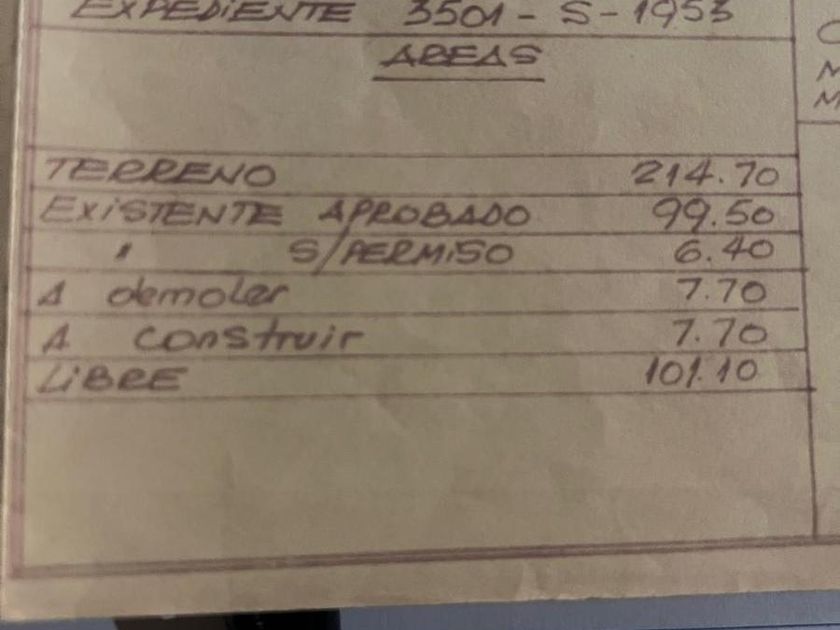 EXPEDIENTE 3501 - S - 1953
AREAS
TERRENO 214.70
EXISTENTE APROBADO 99.50
" S/PERMISO 6.40
A demoler 7.70
A construir 7.70
LIBRE 101.10